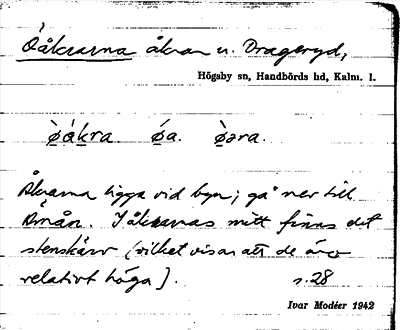 Öåkrarna åkrar u. Drageryd,
Högsby sn, Handbörds hd, Kalm. l.
ø̀ákra. ǿa. ø̀ɜra.
Åkrarna ligga vid byn; gå ner till
Åmån. I åkrarnas mitt finns det
stenskärv (vilket visar att de äro
relativt höga). s. 28
Ivar Modéer 1942